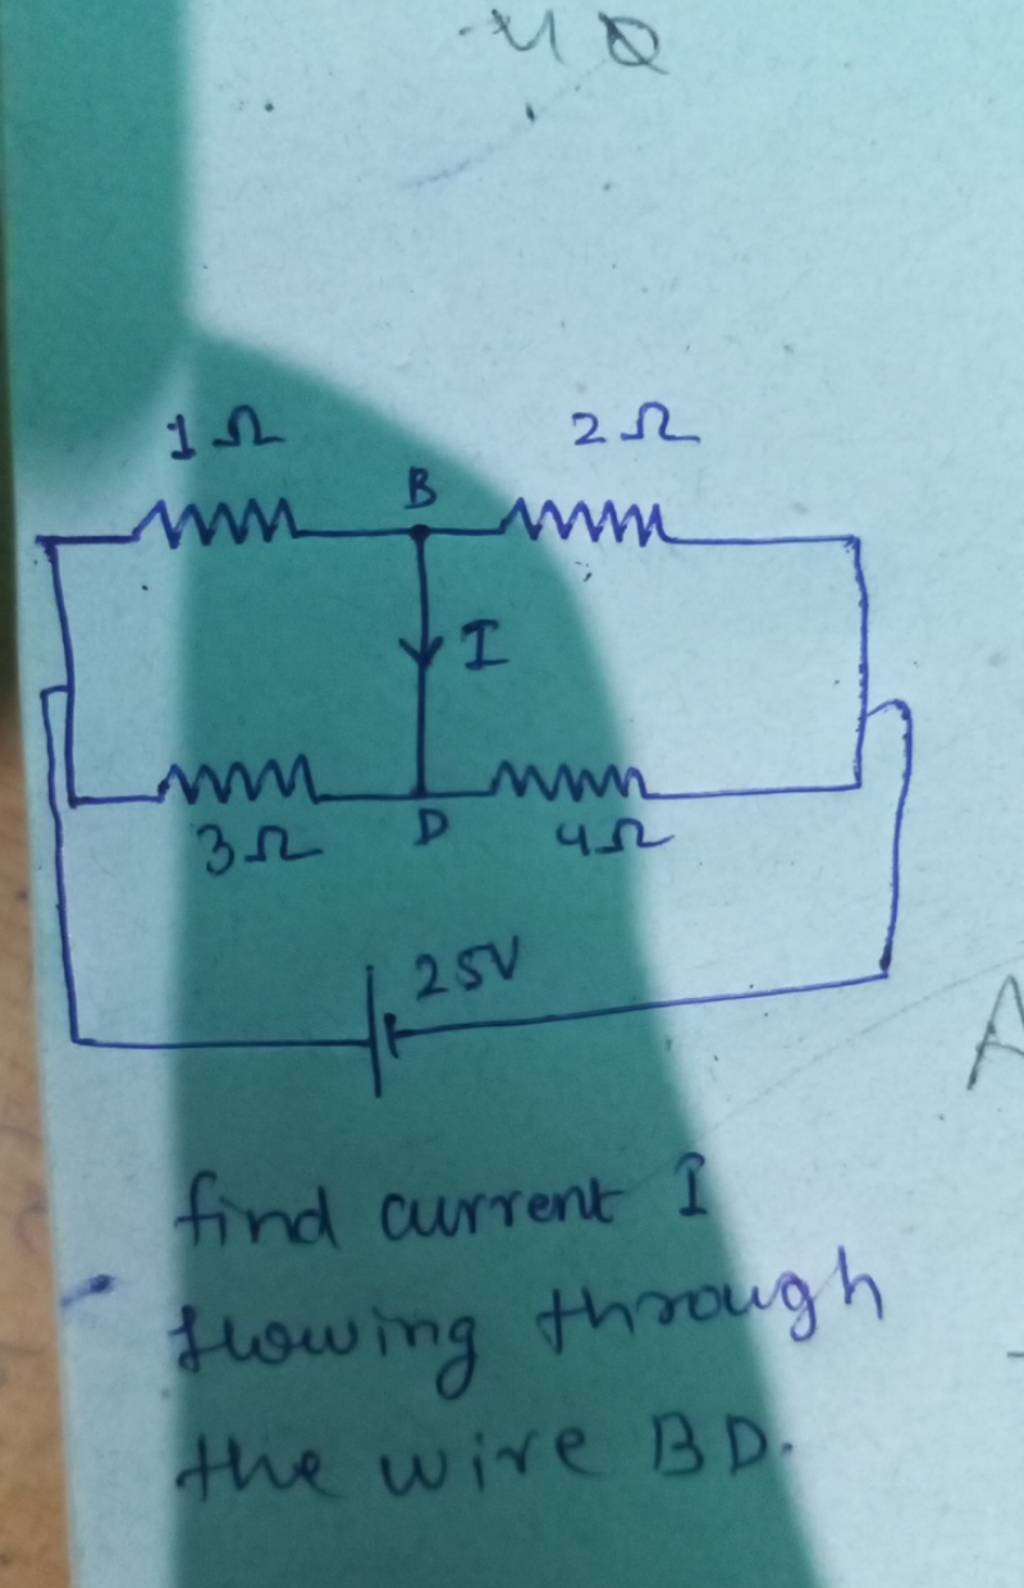 1Ω 2Ω
B
I
D
3Ω 4Ω
25V
A
find current I
flowing through
the wire BD.